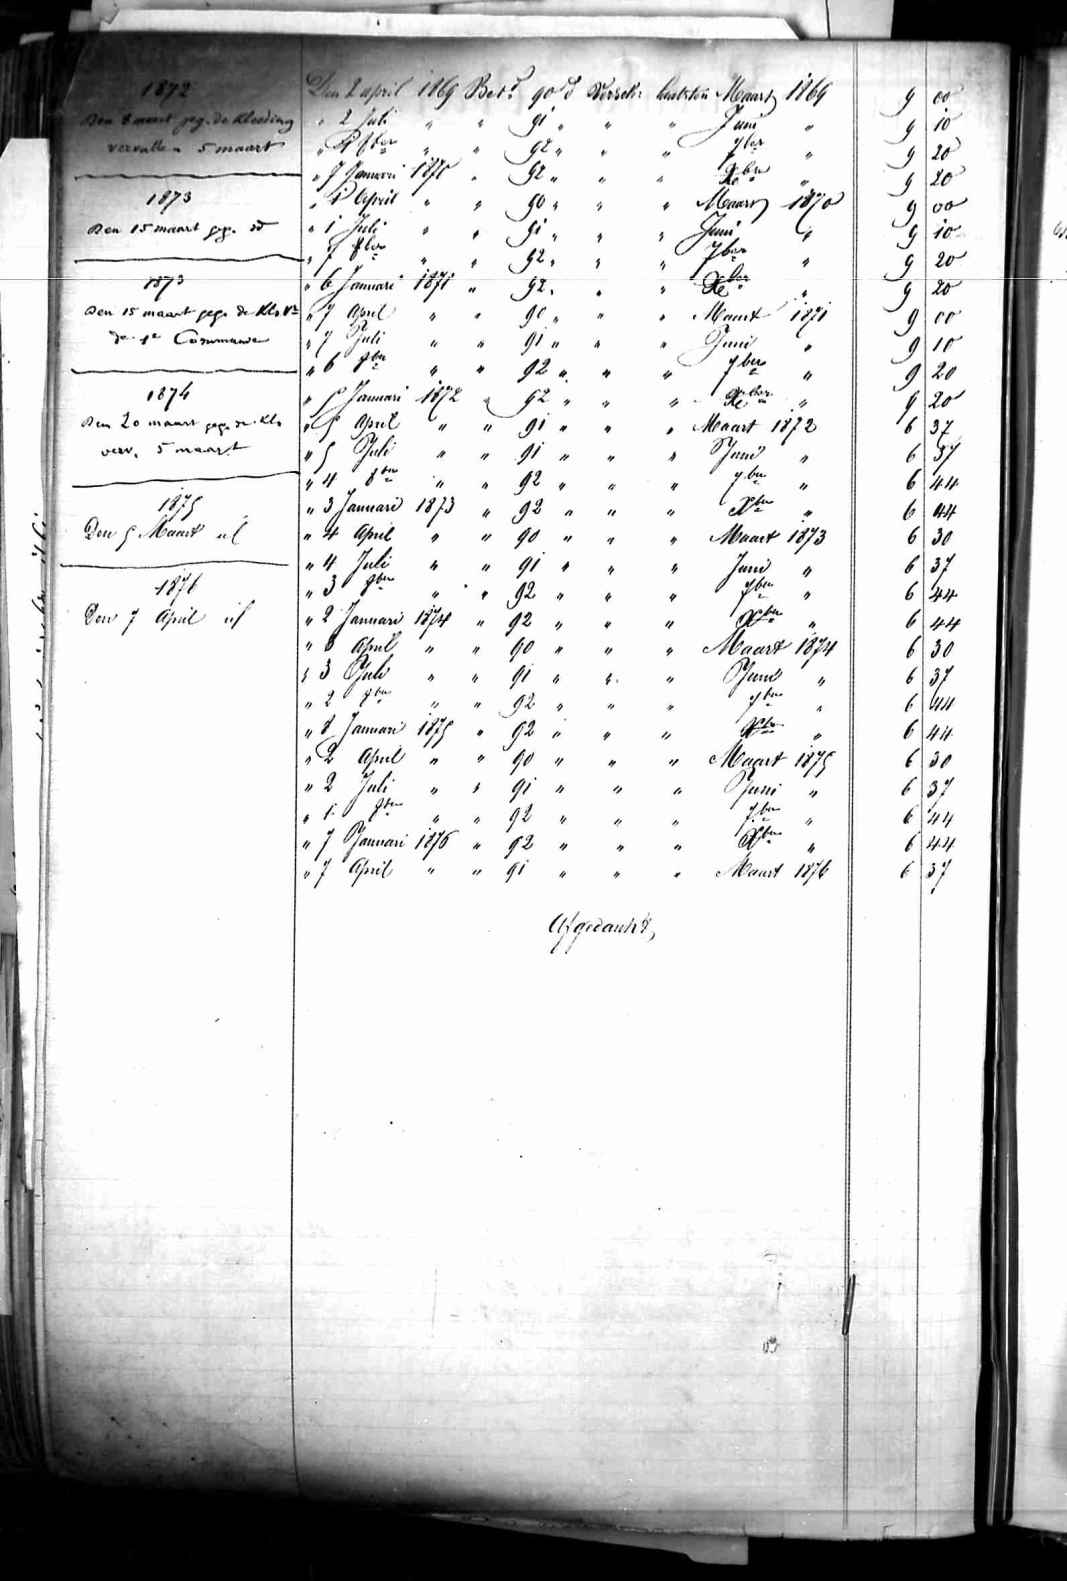 1872
Den 8 maart geg. de Kleeding
vervallen 5 maart
1873
Den 15 maart geg. do
1873
Den 15 maart geg. de Kls Vn
de 1e Commando
1874
Den 20 maart geg. de Kls
verv. 5 maart
1875
Den 5 Maart id
1876
Den 7 April id
Den 2 april 1869 Betd 90 d Versch: laatsten Maart 1869 9 00
" 2 Juli " " 91 " " " Juni " 9 10
" 1 8ber " " 92 " " " 7ber " 9 20
" 7 Januari 1870 " 92 " " " Xber " 9 20
" 1 April " " 90 " " " Maart 1870 9 00
" 1 Juli " " 91 " " " Juni " 9 10
" 7 8ber " " 92 " " " 7ber " 9 20
" 6 Januari 1871 " 92 " " " Xber " 9 20
" 7 April " " 90 " " " Maart 1871 9 00
" 7 Juli " " 91 " " " Juni " 9 10
" 6 8ber " " 92 " " " 7ber " 9 20
" 5 Januari 1872 " 92 " " " Xber " 9 20
" 5 April " " 91 " " " Maart 1872 6 37
" 5 Juli " " 91 " " " Juni " 6 37
" 4 8ber " " 92 " " " 7ber " 6 44
" 3 Januari 1873 " 92 " " " Xber " 6 44
" 4 April " " 90 " " " Maart 1873 6 30
" 4 Juli " " 91 " " " Juni " 6 37
" 3 8ber " " 92 " " " 7ber " 6 44
" 2 Januari 1874 " 92 " " " Xber " 6 44
" 3 April " " 90 " " " Maart 1874 6 30
" 3 Juli " " 91 " " " Juni " 6 37
" 2 8ber " " 92 " " " 7ber " 6 44
" 8 Januari 1875 " 92 " " " Xber " 6 44
" 2 April " " 90 " " " Maart 1875 6 30
" 2 Juli " " 91 " " " Juni " 6 37
" 1 8ber " " 92 " " " 7ber " 6 44
" 7 Januari 1876 " 92 " " " Xber " 6 44
" 7 April " " 91 " " " Maart 1876 6 37
Afgedankt,